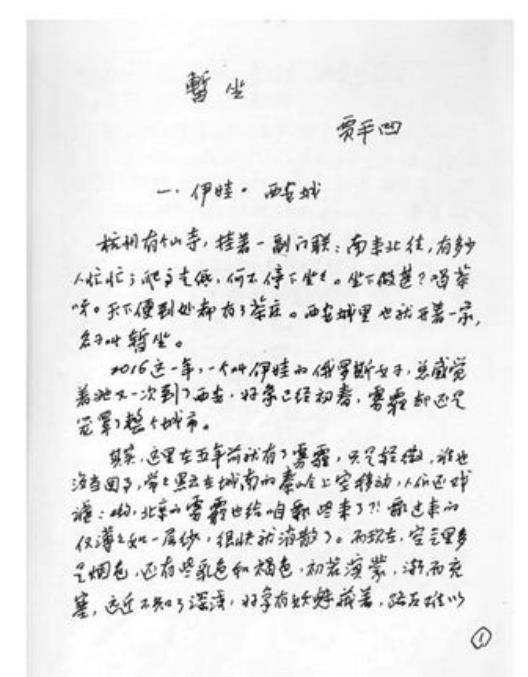 暫坐
贾平凹
一. 伊娃。西安城
杭州有个山寺，挂着一副门联：南来北往，有多少
人忙忙；爬高走低，何不停下坐坐。坐下做甚？喝茶
呀。天下便到处都有了茶庄。西安城里也就开着一家，
名叫暂坐。
2016这一年，一个叫伊娃的俄罗斯女子，总感觉
着她又一次到了西安，好象已经初春，雾霾却还是
笼罩了整个城市。
其实，这里在五年前就有了雾霾，只是轻微，谁也
没当回事，常见黑云在城南的秦岭上空移动，人们还戏
谑：呦，北京的雾霾也给咱飘些来了？！飘过来的
仅薄薄如一层纱，很快就消散了。而现在，空气里多
是烟色，还有些乳色和褐色，初若溟濛，渐而充
塞，远近不知了深浅，好象有妖魅藏着，路已难以
1